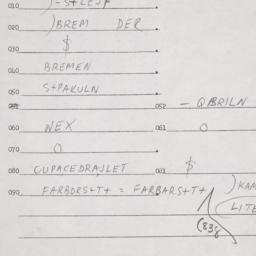 010 )-S+LESP
020 )BREM DER
030 $
040 BREMEN
050 S+PAKULN
052 - QBRILN
060 NEX 061 0
070 0
080 OUPACEDRAJLET 081 $
090 FARBORS+T+ = FARBARS+T+ )KAA
(LITE
(838